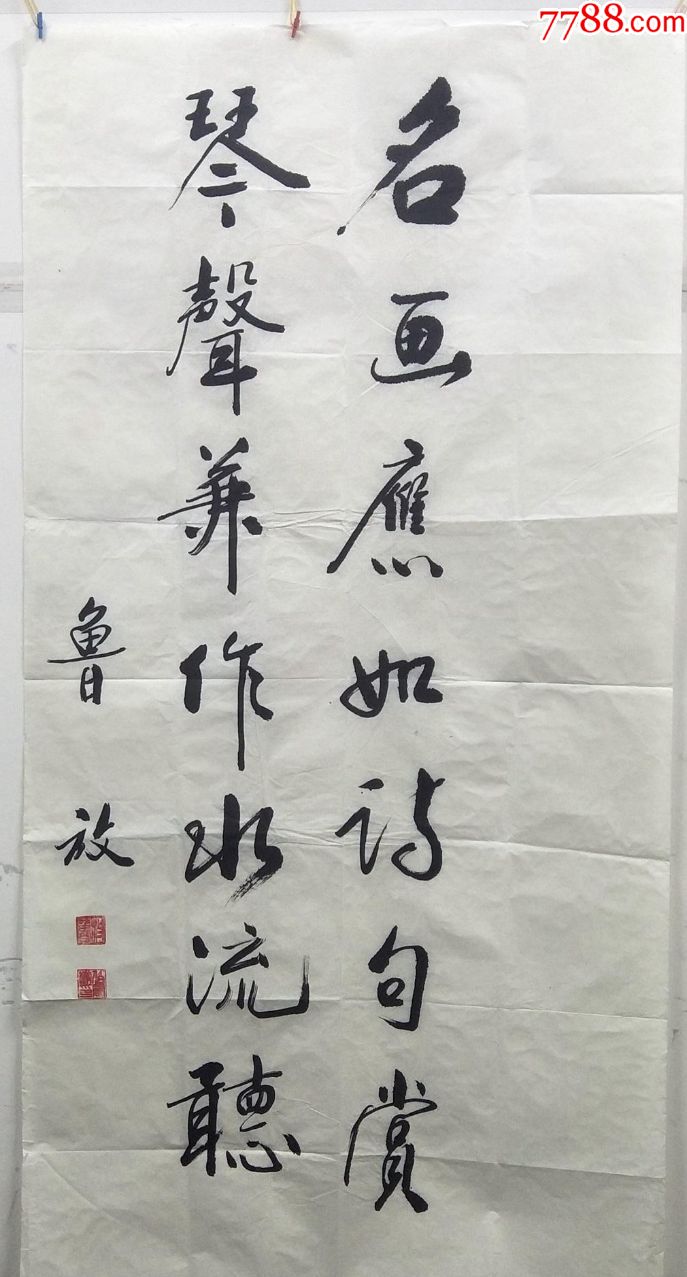 7788.com
名画應如诗句赏
琴聲兼作水流聽
鲁放